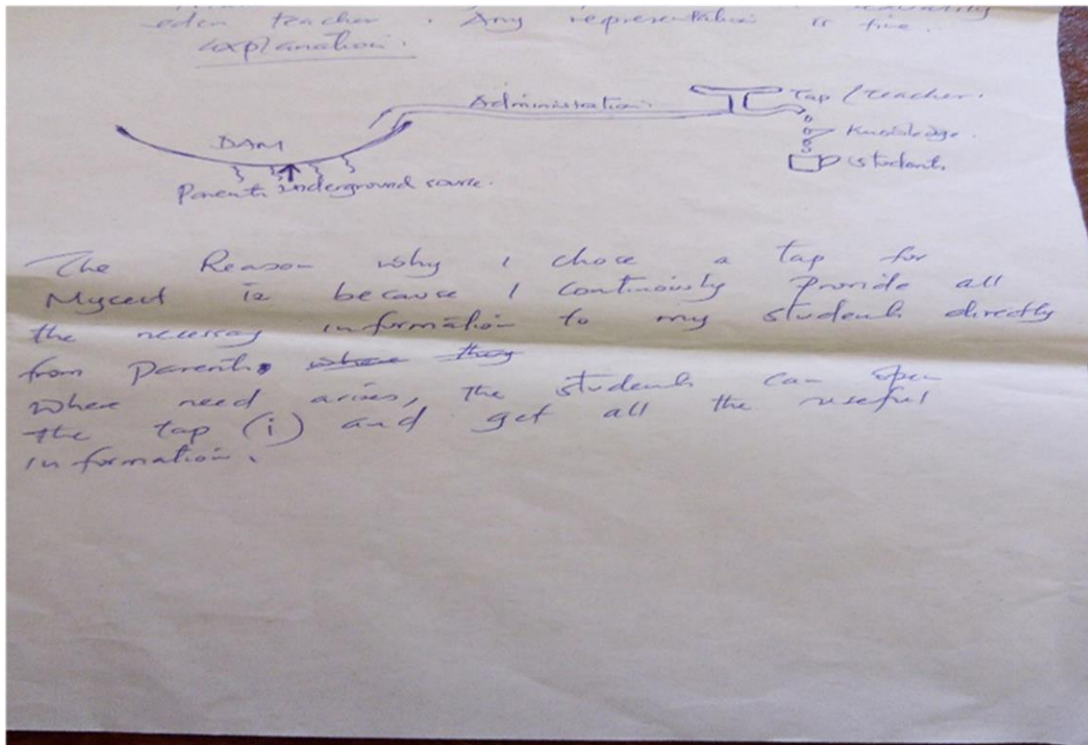 eden teacher. Any representation is fine.
explanation.
Administration
Tap/teacher.
DAM
Knowledge.
student.
Parent underground source.
The Reason why I chose a tap for
Myself is because I continuously provide all
the necessary information to my students directly
from parents. where they
where need arises, the students can open
the tap (i) and get all the useful
information.